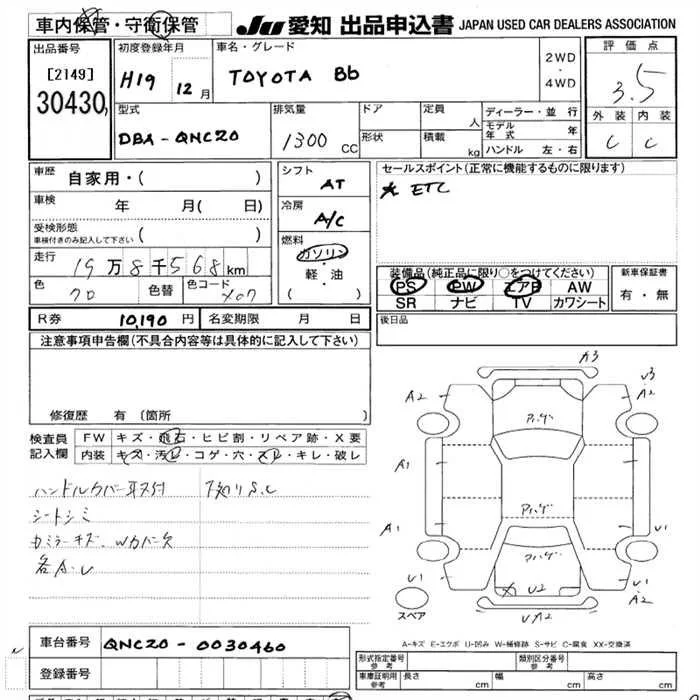 車内保管・守衛保管 JU 愛知 出品申込書 JAPAN USED CAR DEALERS ASSOCIATION
出品番号 初度登録年月 車名・グレード 評価点
[2149] 30430 H19 12月 TOYOTA Bb 2WD・4WD 3.5
型式 排気量 ドア 定員 ディーラー・並行 外装 内装
人 モデル年式 年
DBA-QNC20 1300CC 形状 積載 kg ハンドル 左・右 C C
車歴 自家用・( ) シフト AT セールスポイント(正常に機能するものに限ります)
車検 年 月( 日) 冷房 A/C ETC
受検形態 車検付きのみ記入して下さい ( )
走行 19万8千568km 燃料 ガソリン・軽・油 ( )
装備品(純正品に限り○をつけてください) 新車保証書
色 クロ 色替 色コード X07 PS PW エアB AW 有・無
SR ナビ TV カワシート
R券 10,190円 名変期限 月 日 後日品
注意事項申告欄(不具合内容等は具体的に記入して下さい)
修復歴 有 〔箇所 〕
検査員記入欄 FW キズ・飛石・ヒビ割・リペア跡・X要
内装 キズ・汚レ・コゲ・穴・スレ・キレ・破レ
シートシミ
A3
A2 A2 V3
アハゲ
A1
アハゲ
A1 U1
アハゲ
U1 X U2 U1 A2
スペア
A-キズ E-エクボ U-凹み W-補修跡 S-サビ C-腐食 XX-交換済
車台番号 QNC20-0030460
登録番号
形式指定番号 参考 類別区分番号 参考
車庫証明用 参考 長さ cm 幅 cm 高さ cm